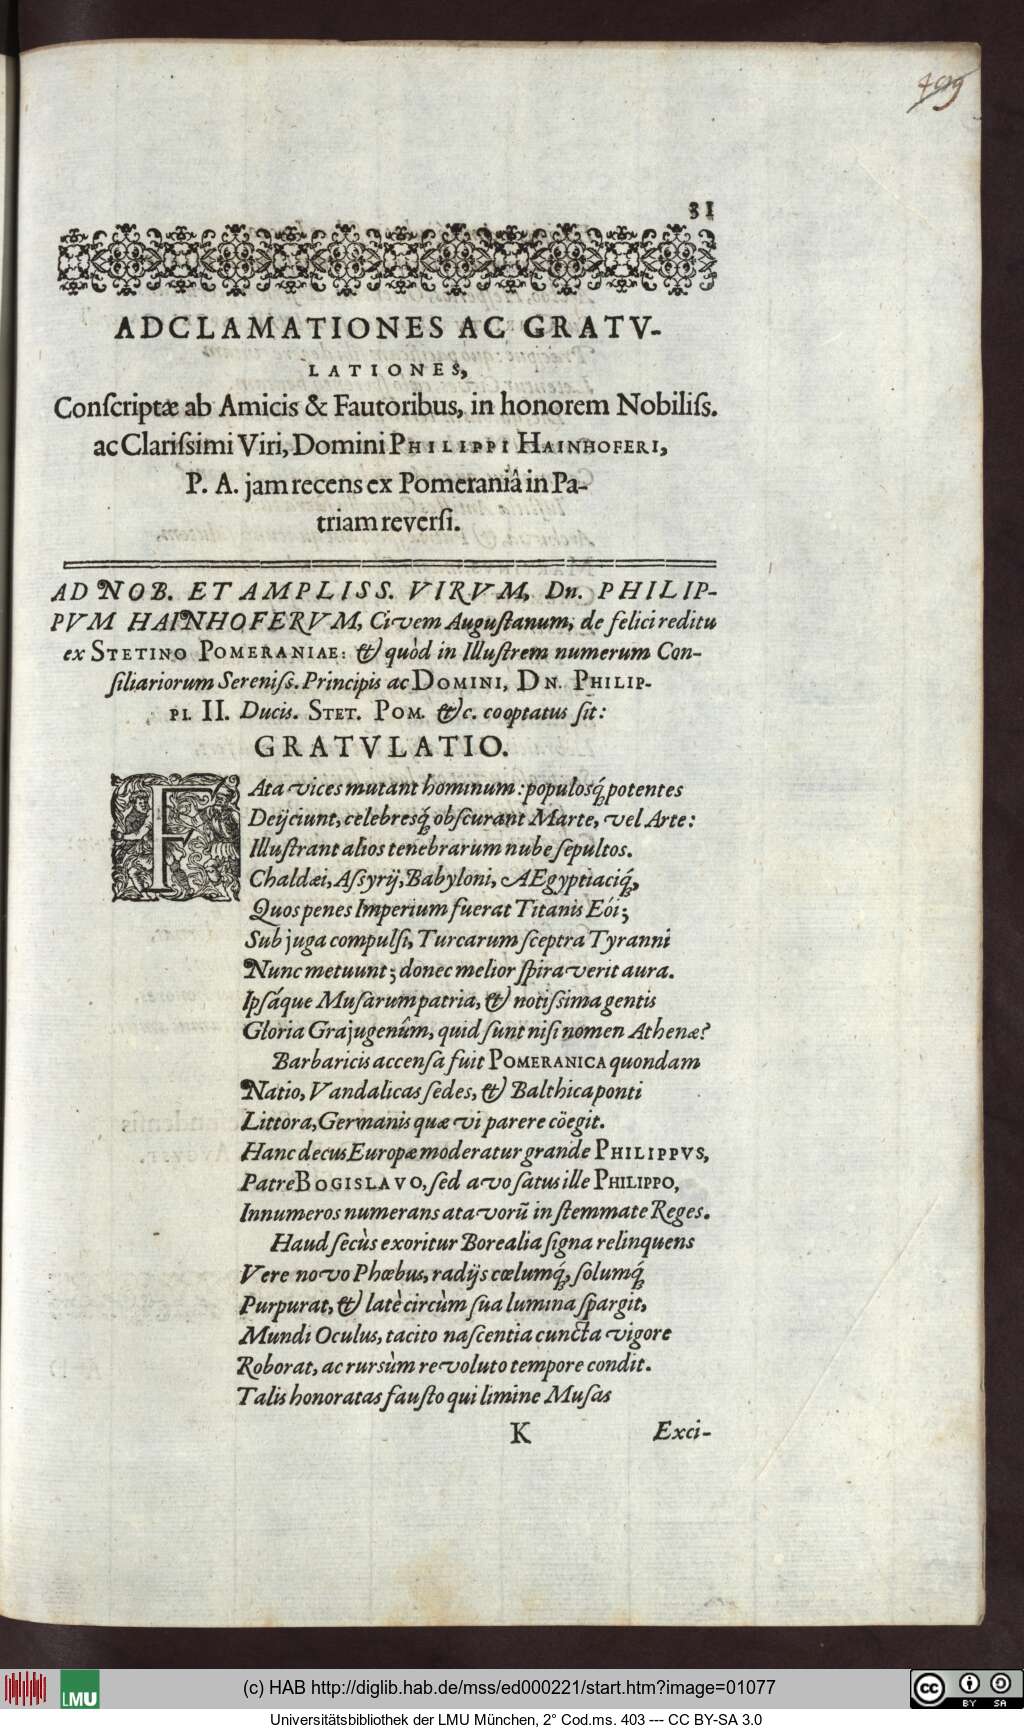 31
ADCLAMATIONES AC GRATV-
LATIONES,
Conſcriptæ ab Amicis & Fautoribus, in honorem Nobiliſs.
ac Clariſsimi Viri, Domini PHILIPPI HAINHOFERI,
P. A. jam recens ex Pomeraniâ in Pa-
triam reverſi.
AD NOB. ET AMPLISS. VIRVM, Dn. PHILIP-
PVM HAINHOFERVM, Civem Auguſtanum, de felici reditu
ex STETINO POMERANIAE: & quòd in Illuſtrem numerum Con-
ſiliariorum Sereniſs. Principis ac DOMINI, DN. PHILIP-
PI. II. Ducis. STET. POM. &c. cooptatus ſit:
GRATVLATIO.
FAta vices mutant hominum: populosq́; potentes
Deijciunt, celebresq́; obſcurant Marte, vel Arte:
Illuſtrant alios tenebrarum nube ſepultos.
Chaldæi, Aſsyrij, Babyloni, AEgyptiaciq́;,
Quos penes Imperium fuerat Titanis Eói;
Sub juga compulſi, Turcarum ſceptra Tyranni
Nunc metuunt; donec melior ſpiraverit aura.
Ipſáque Muſarum patria, & notiſsima gentis
Gloria Grajugenûm, quid ſunt niſi nomen Athenæ?
Barbaricis accenſa fuit POMERANICA quondam
Natio, Vandalicas ſedes, & Balthica ponti
Littora, Germanis quæ vi parere cöegit.
Hanc decus Europæ moderatur grande PHILIPPVS,
Patre BOGISLAVO, ſed avo ſatus ille PHILIPPO,
Innumeros numerans atavorũ in ſtemmate Reges.
Haud ſecùs exoritur Borealia ſigna relinquens
Vere novo Phœbus, radijs cœlumq́;, ſolumq́;
Purpurat, & latè circùm ſua lumina ſpargit,
Mundi Oculus, tacito naſcentia cuncta vigore
Roborat, ac rursùm revoluto tempore condit.
Talis honoratas fauſto qui limine Muſas
K Exci-
LMU
(c) HAB http://diglib.hab.de/mss/ed000221/start.htm?image=01077
cc BY SA
Universitätsbibliothek der LMU München, 2° Cod.ms. 403 --- CC BY-SA 3.0